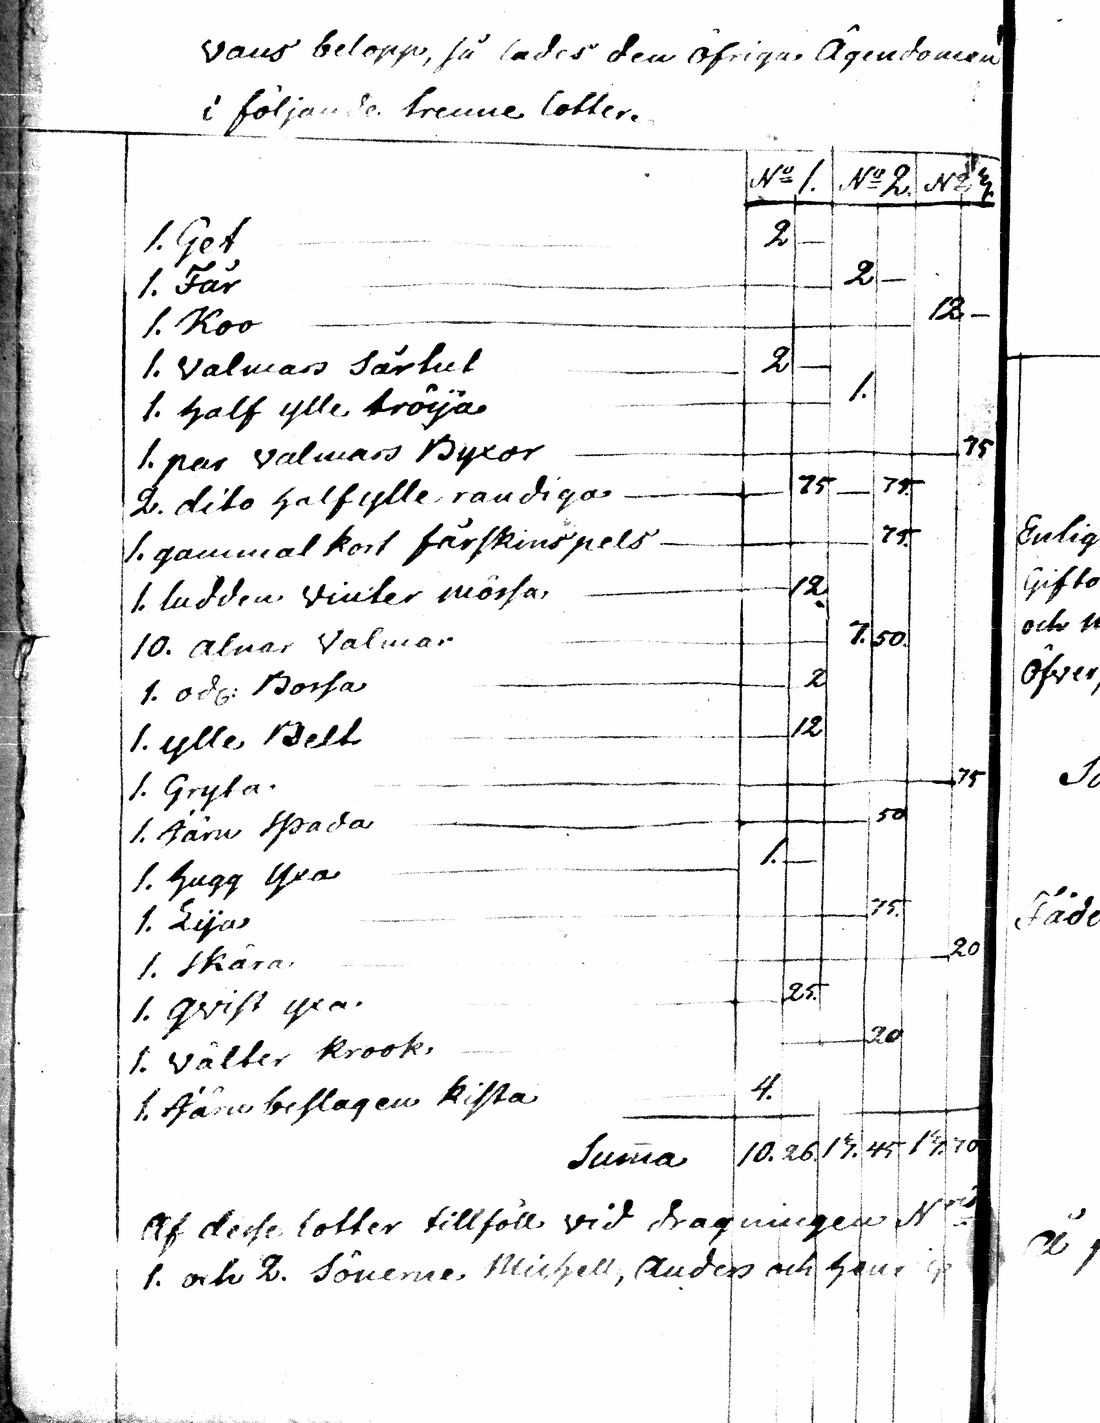 vans belopp, så lades den öfriga Ägendomen
i följande trenne lotter.
No 1. No 2. No 3.
1. Get 2 —
1. Får 2 —
1. Koo 12 —
1. Valmars Sårtut 2 —
1. half ylle tröija 1.
1. par valmars Byxor 75
2. dito halfylle randiga 75 — 75
1. gammal kort fårskinspels 75.
1. ludden vinter mössa 12.
10. alnar Valmar 7. 50.
1. Borsa 2
1. ylle Belt 12
1. Gryta. 75
1. Järn Spada 50
1. hugg yxa 1. —
1. Lija 75.
1. Skära 20
1. qvist yxa. 25.
1. välter krook. 20
1. Järnbeslagen kista 4.
Summa 10. 26. 13. 45 13. 70
Af desse lotter tillföll vid dragningen N
1. och 2. Sönerne Michell, Anders och
Enlig
Gifto
och
Öfver
Fäde